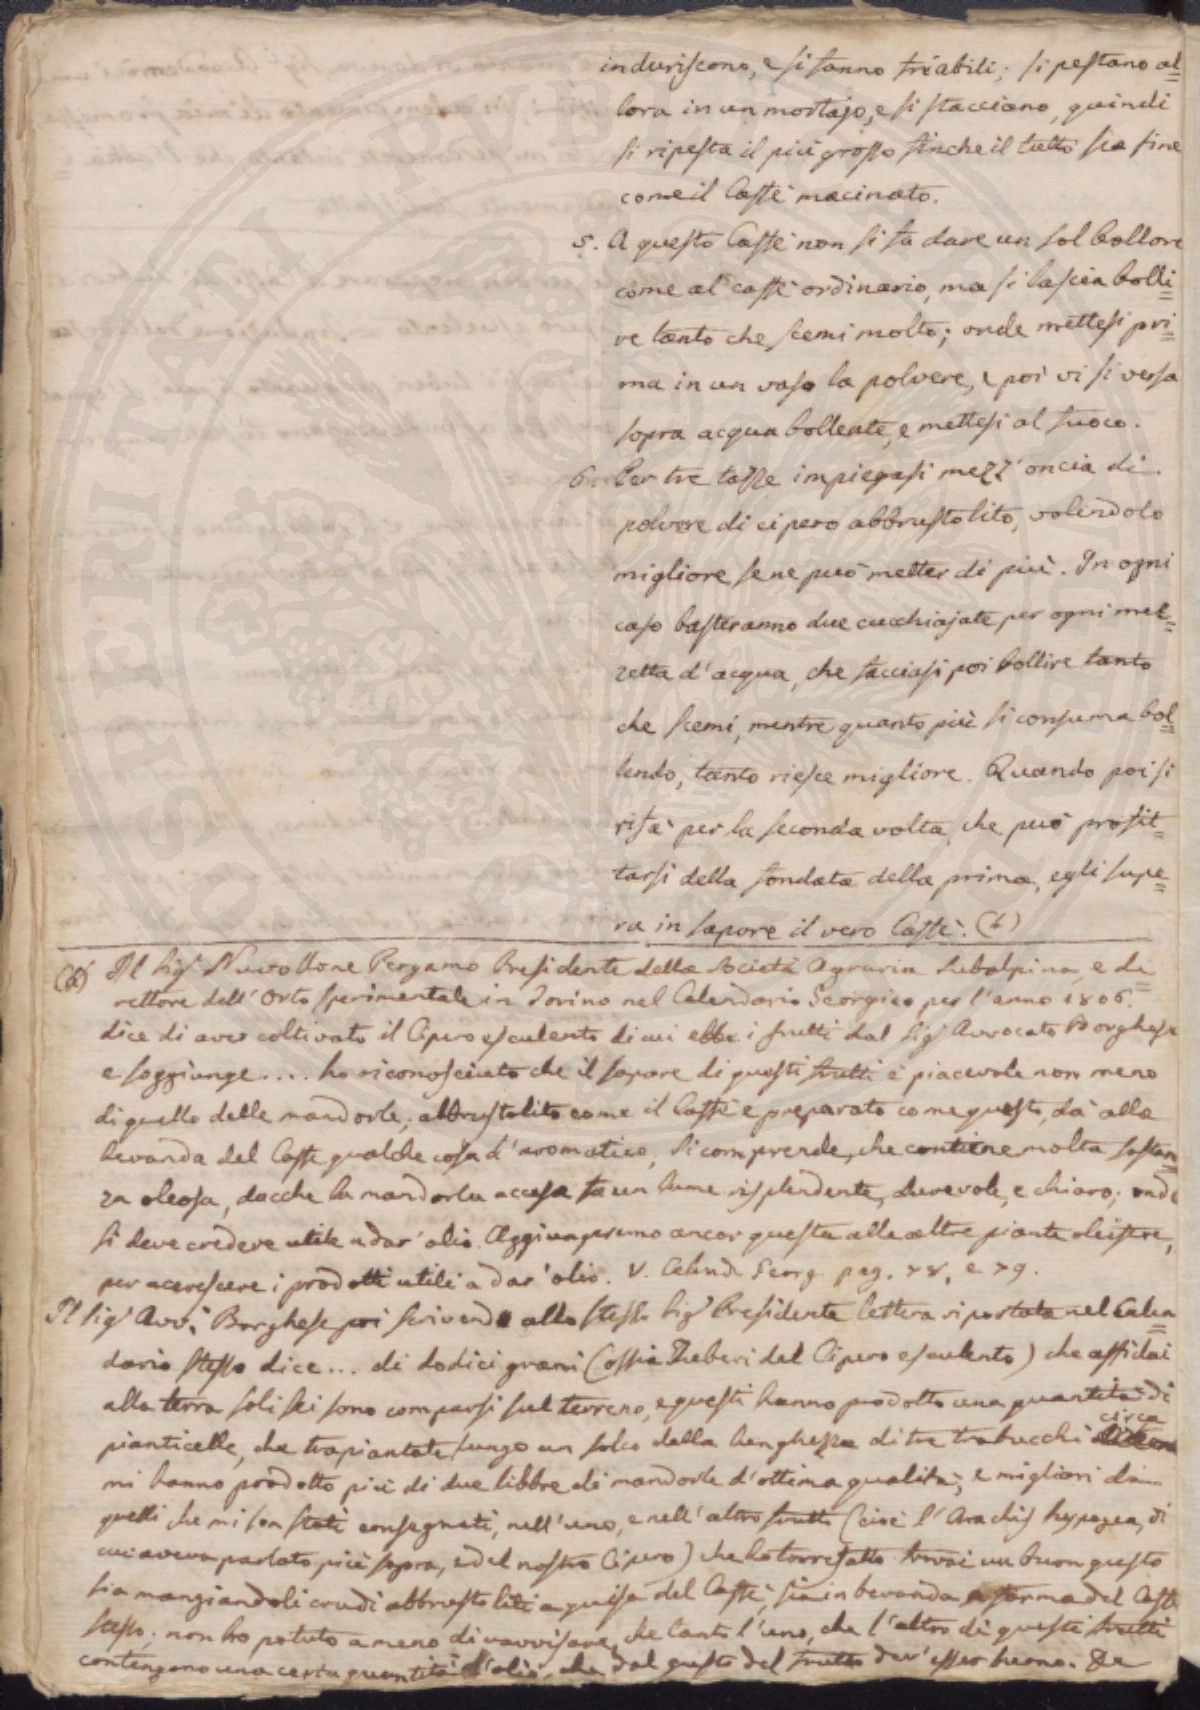 induriscono, e si fanno friabili; si pestano al=
lora in un mortajo, e si stacciano, quindi
si ripesta il più grosso finche il tutto sia fine
come il Caffè macinato.
5. A questo Caffè non si fa dare un sol bollore
come al caffè ordinario, ma si lascia bolli=
re tanto che scemi molto; onde mettesi pri=
ma in un vaso la polvere, e poi vi si versa
sopra acqua bollente, e mettesi al fuoco.
6. Per tre tazze impiegasi mezz'oncia di
polvere di cipero abbrustolito, volendolo
migliore se ne può metter di più. In ogni
caso basteranno due cucchiajate per ogni mez=
zetta d'acqua, che facciasi poi bollire tanto
che scemi, mentre quanto più si consuma bol=
lendo, tanto riesce migliore. Quando poi si
rifà per la seconda volta, che può profit=
tarsi della fondata della prima, egli supe=
ra in sapore il vero Caffè. (a)
(a) Il Sig.r Nuvollone Pergamo Presidente della Società Agraria Subalpina, e di=
rettore dell'Orto sperimentale in Torino nel Calendario Georgico per l'anno 1806.
dice di aver coltivato il Cipero esculento di cui ebbe i frutti dal Sig.r Avvocato Borghese
e soggiunge.... ho riconosciuto che il sapore di questi frutti è piacevole non meno
di quello delle mandorle; abbrustolito come il Caffè e preparato come questo, dà alla
bevanda del Caffe qualche cosa d'aromatico, si comprende, che contiene molta sostan=
za oleosa, dacche la mandorla accesa fa un lume risplendente, durevole, e chiaro; onde
si deve credere utile a dar'olio. Aggiungeremo ancor questa alle altre piante oleifere,
per accrescere i prodotti utili a dar'olio. V. Calend. Georg. pag. 78, e 79.
Il Sig.r Avv. Borghese poi scrivendo allo stesso Sig.r Presidente lettera riportata nel Calen=
dario stesso dice... di dodici grani (ossia Tuberi del Cipero esculento) che affidai
alla terra soli sei sono comparsi sul terreno, e questi hanno prodotto una quantità di
pianticelle, che trapiantate lungo un solco della lunghezza di tre trabucchi circa
mi hanno prodotto più di due libbre di mandorle d'ottima qualità, e migliori di
quelli che mi son stati consegnati, nell'uno, e nell'altro frutto (cioè l'Arachis hypogea, di
cui aveva parlato più sopra, e del nostro Cipero) che ho torrefatto trovai un buon gusto
sia mangiandoli crudi abbrustoliti a guisa del Caffè, sia in bevanda a forma del Caffe
stesso; non ho potuto a meno di ravvisare, che tanto l'uno, che l'altro di questi frutti
contengono una certa quantità d'olio, che dal gusto del frutto dev'esser buono. De